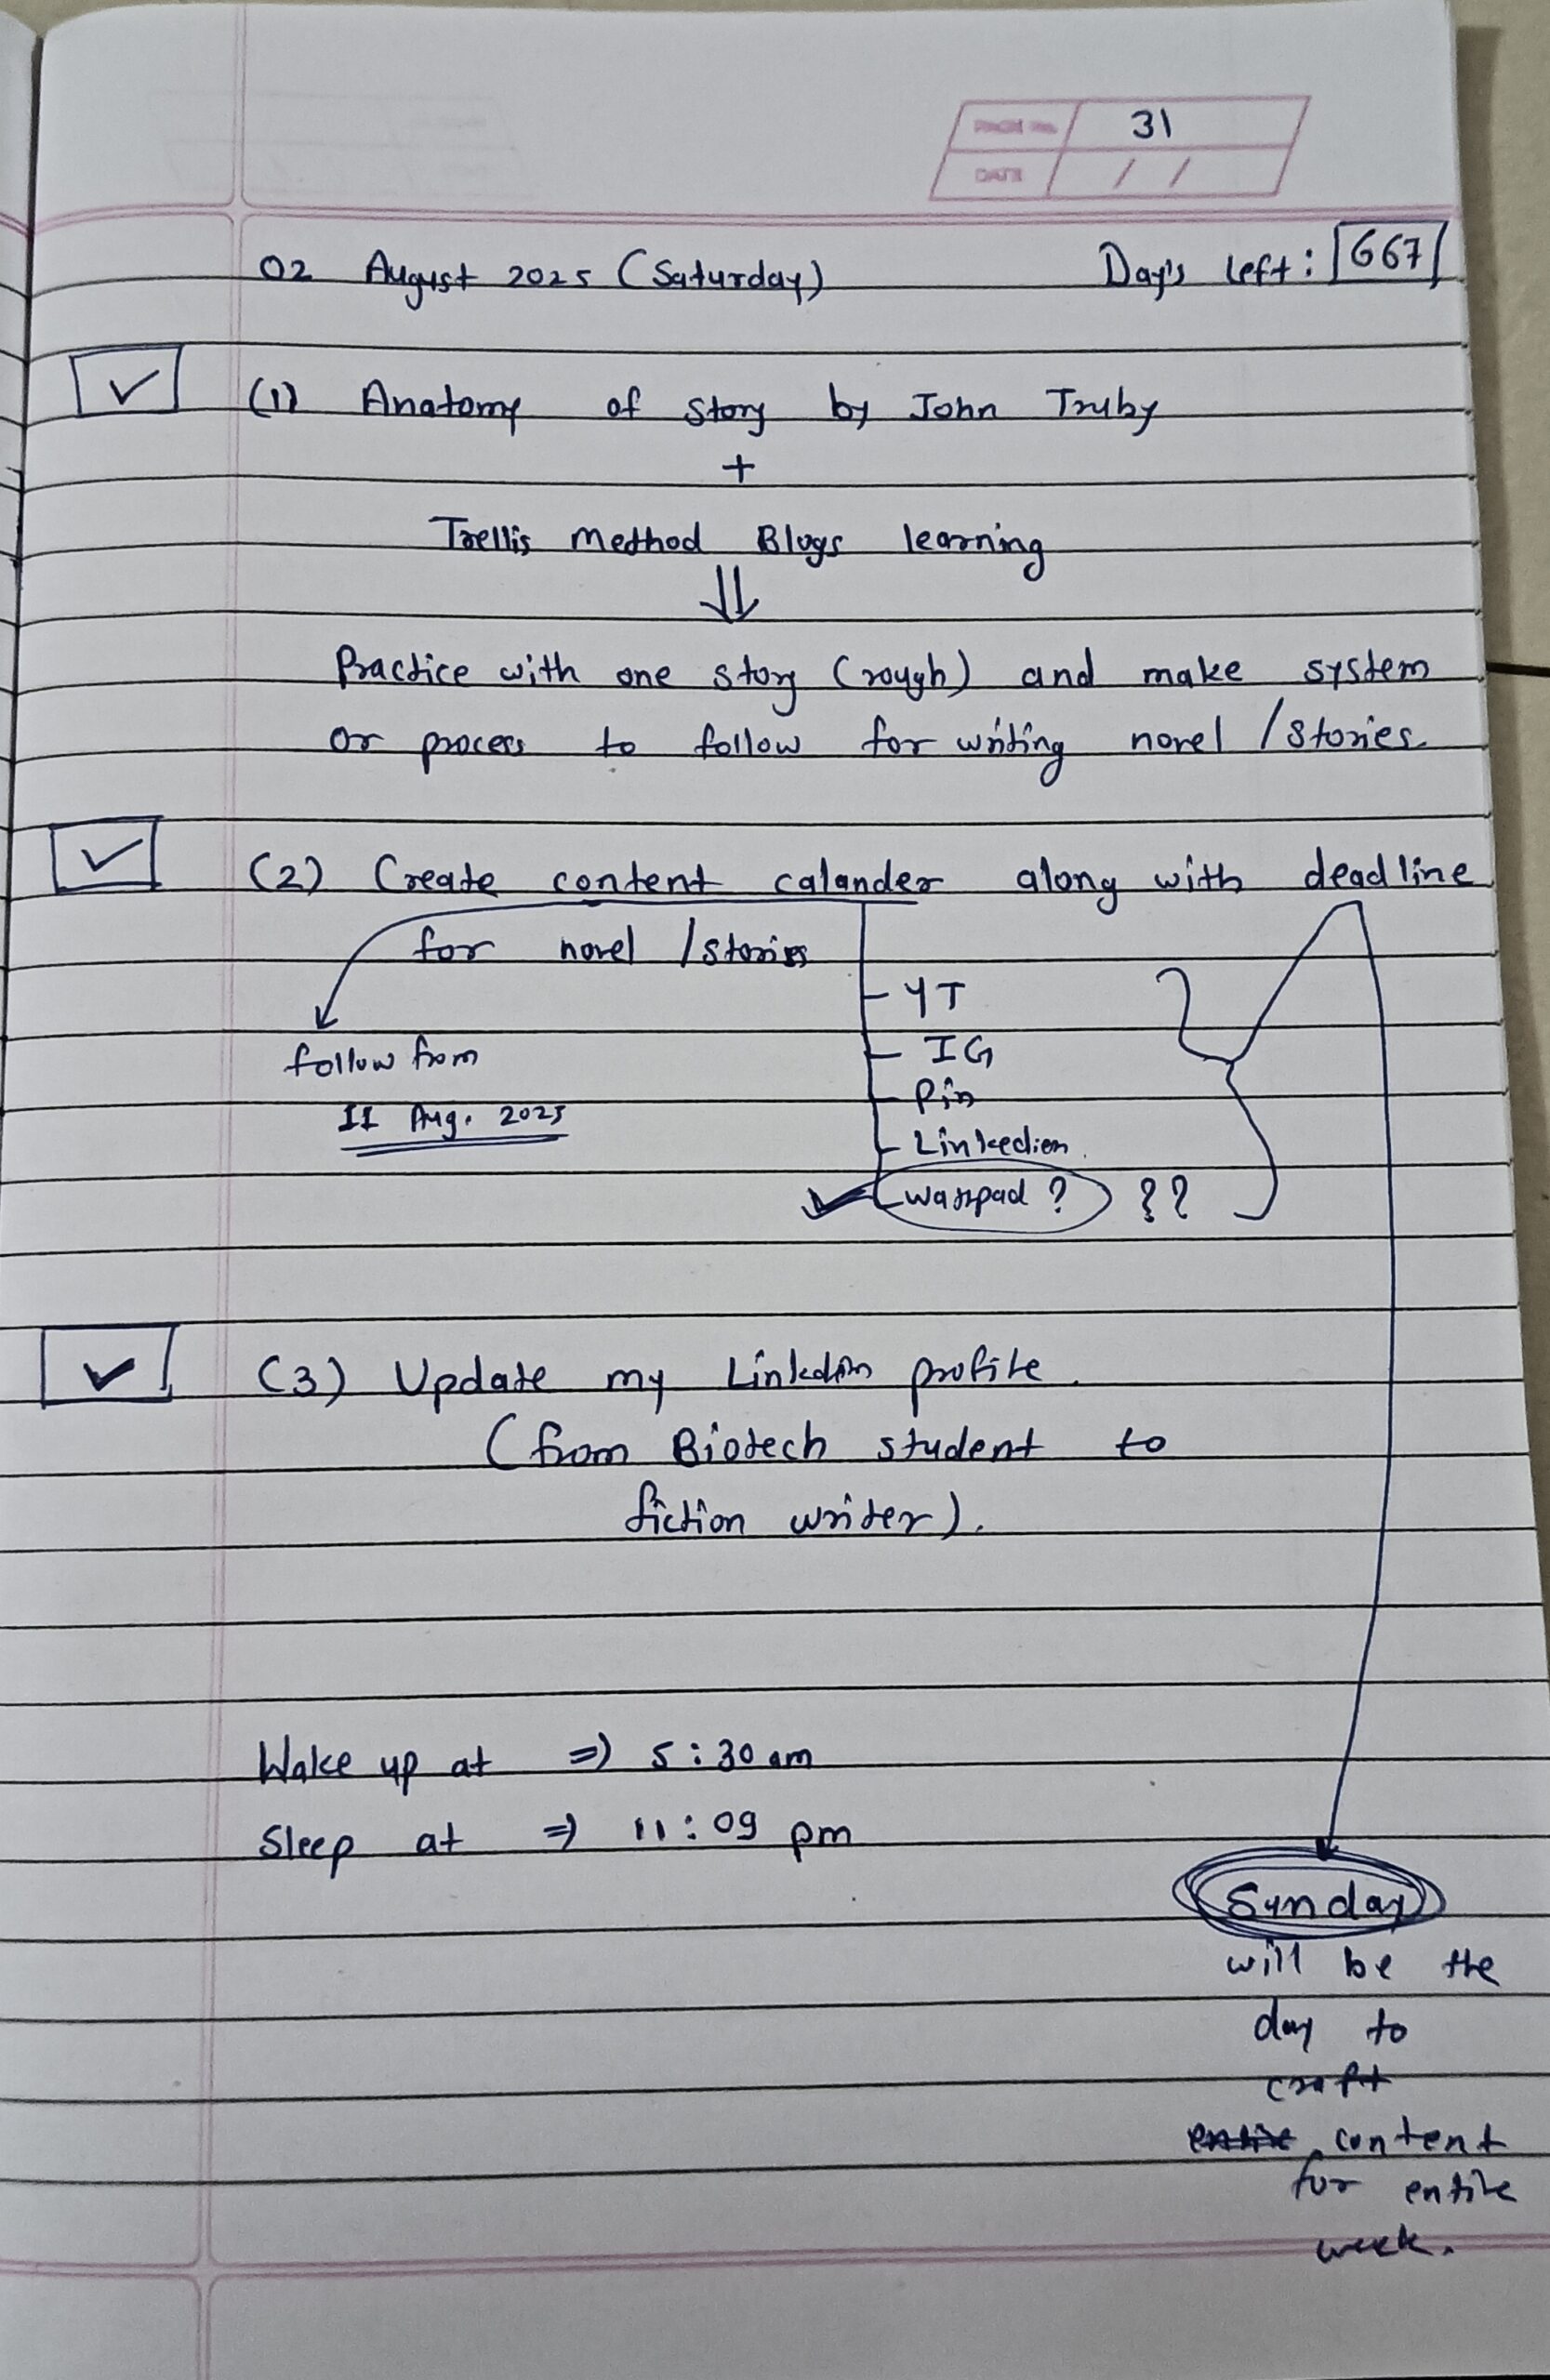 PAGE No. 31
DATE / /
02 August 2025 (Saturday) Day's left: 667
(1) Anatomy of story by John Truby
+
Trellis method Blogs learning
⇓
Practice with one story (rough) and make system
or process to follow for writing novel / stories.
(2) Create content calander along with deadline
for novel / stories
- YT
- IG
follow from
- Pin
11 Aug. 2025
- Linkedien.
- wattpad ? ??
(3) Update my Linkdin profile.
(from Biotech student to
fiction writer).
Wake up at ⇒ 5:30 am
Sleep at ⇒ 11:09 pm
Sunday
will be the
day to
craft
entire content
for entire
week.